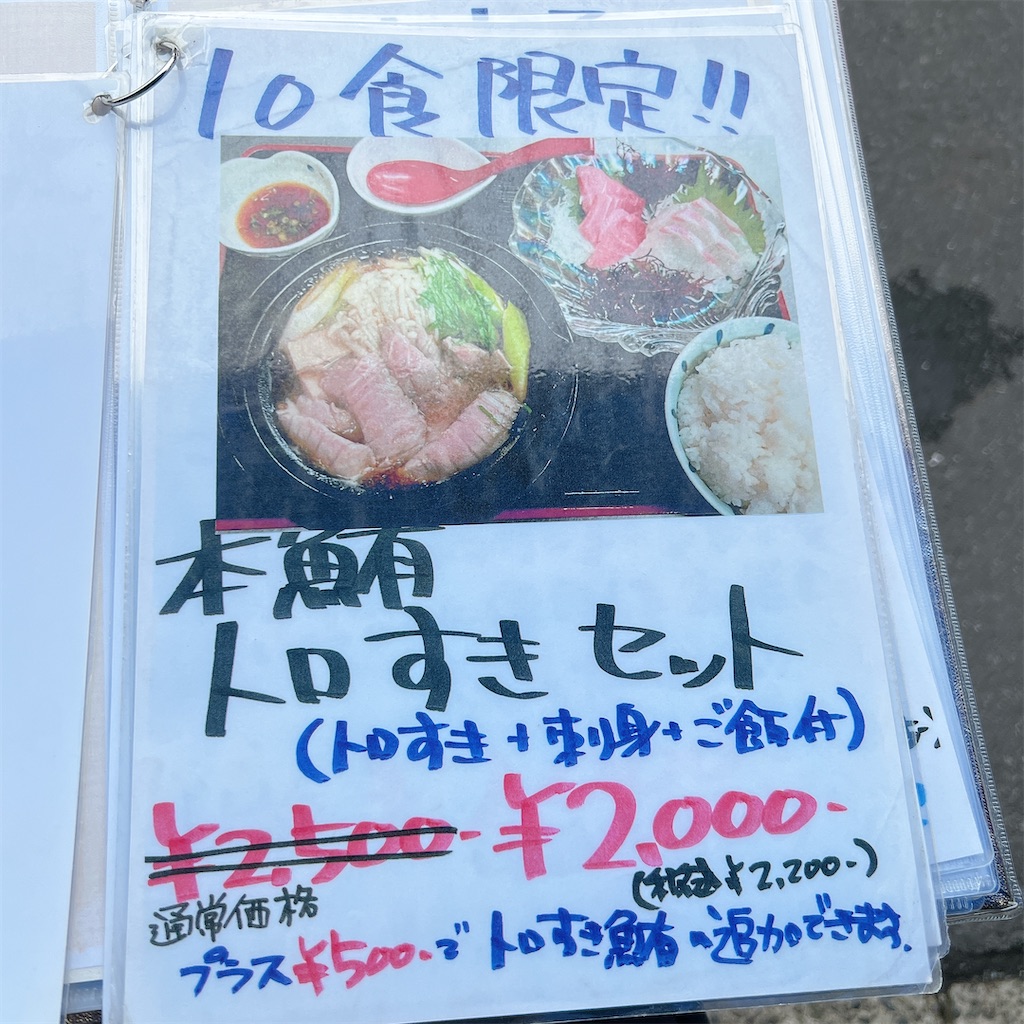 10食限定!!
本鮪
トロすきセット
(トロすき+刺身+ご飯付)
¥2,500- ¥2,000-
(税込¥2,200-)
通常価格
プラス¥500-でトロすき鮪の追加できます。